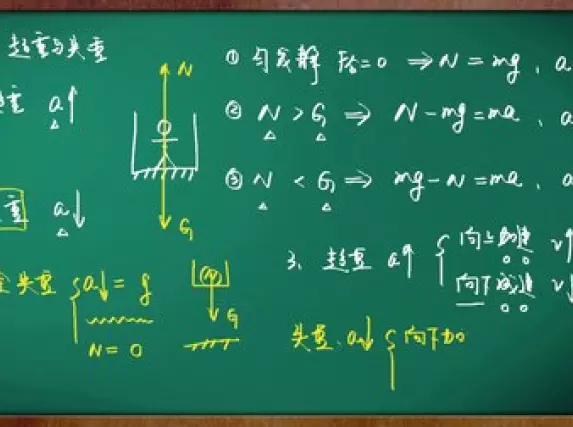 超重与失重
重 a↑
N
G
重 a↓
全失重 a↓=g
N=0
m
G
① 匀或静 F合=0 ⇒ N=mg、a
② N>G ⇒ N-mg=ma、a
③ N<G ⇒ mg-N=ma、a
3、超重 a↑ { 向上加速 v↑
向下减速 v↓
失重、a↓ { 向下加